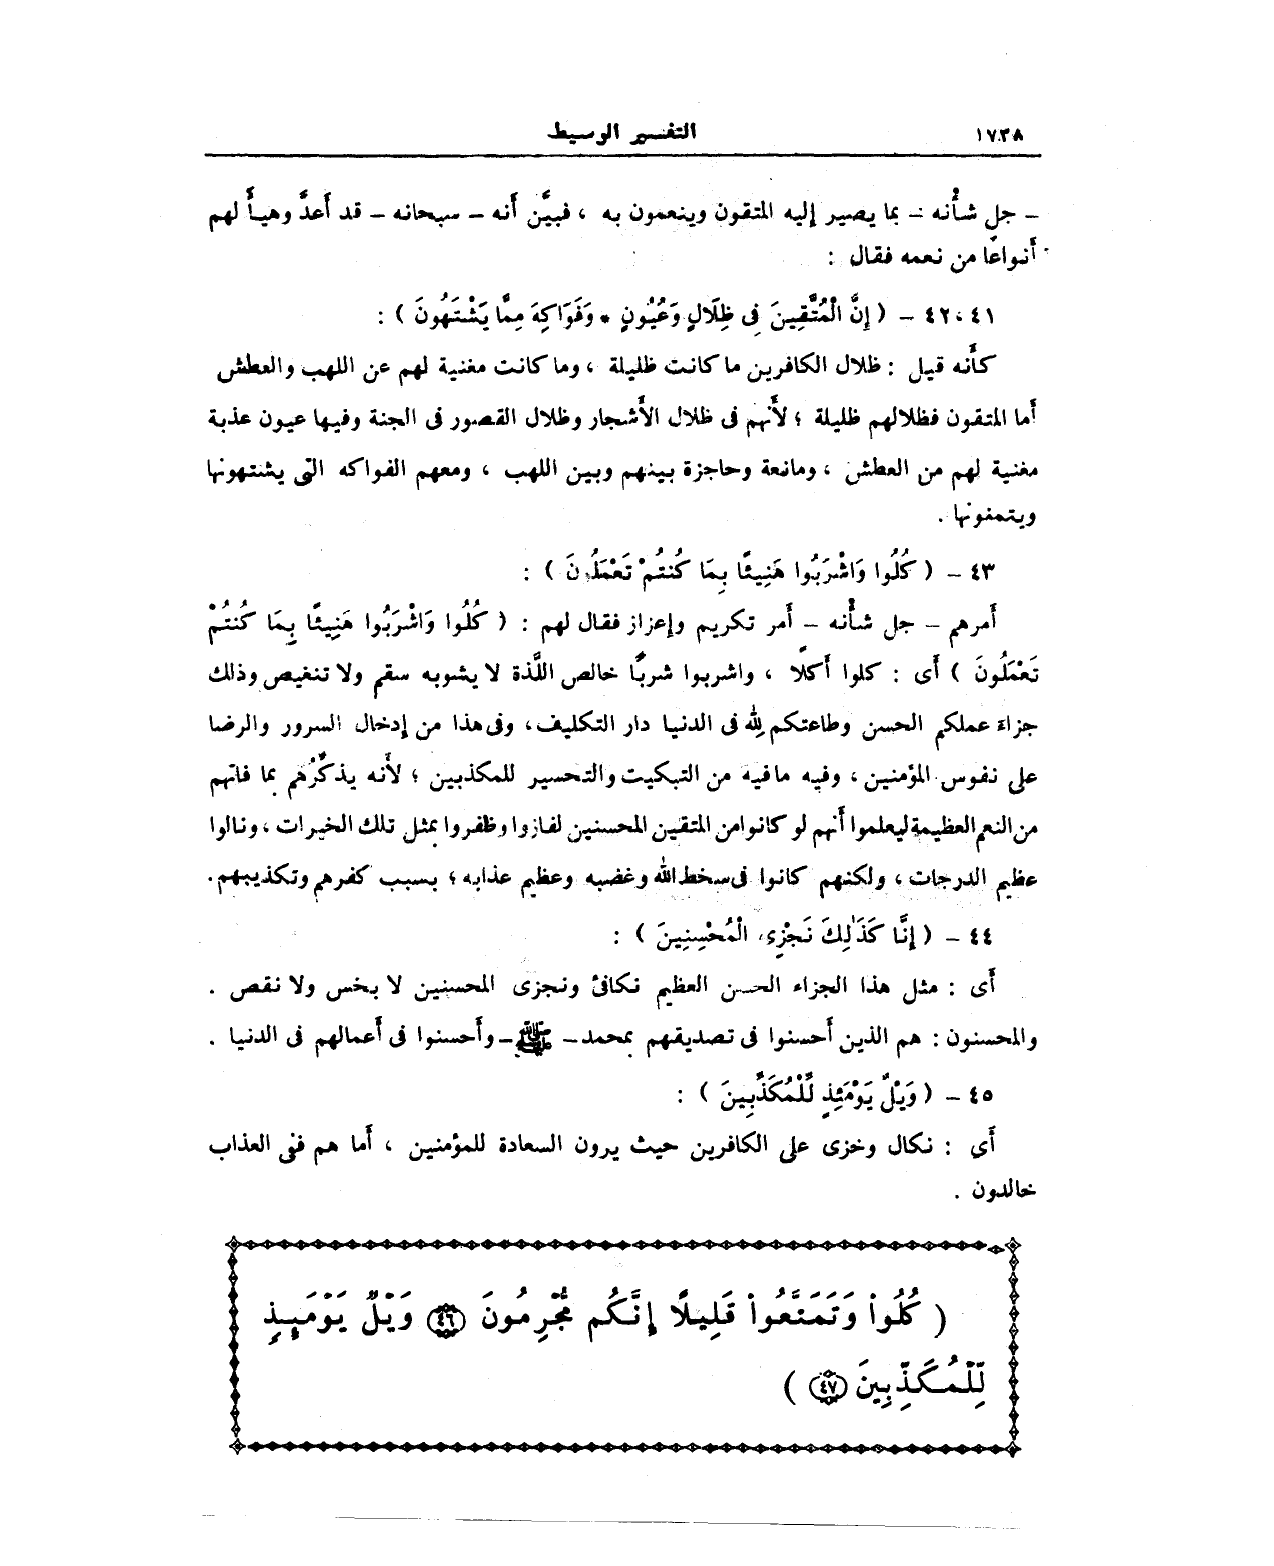 ١٧٣٨ التفسير الوسيط
– جل شأنه – بما يصير إليه المتقون وينعمون به ، فبيَّن أنه – سبحانه – قد أعدَّ وهيأ لهم
أنواعًا من نعمه فقال :
٤١ ، ٤٢ – ( إِنَّ الْمُتَّقِينَ فِى ظِلَالٍ وَعُيُونٍ * وَفَوَاكِهَ مِمَّا يَشْتَهُونَ ) :
كأَنه قيل : ظلال الكافرين ما كانت ظليلة ، وما كانت مغنية لهم عن اللهب والعطش
أما المتقون فظلالهم ظليلة ؛ لأَنهم فى ظلال الأَشجار وظلال القصور فى الجنة وفيها عيون عذبة
مغنية لهم من العطش ، ومانعة وحاجزة بينهم وبين اللهب ، ومعهم الفواكه التى يشتهونها
ويتمنونها .
٤٣ – ( كُلُوا وَاشْرَبُوا هَنِيئًا بِمَا كُنتُمْ تَعْمَلُونَ ) :
أَمرهم – جل شأْنه – أَمر تكريم وإعزاز فقال لهم : ( كُلُوا وَاشْرَبُوا هَنِيئًا بِمَا كُنتُمْ
تَعْمَلُونَ ) أَى : كلوا أَكلًا ، واشربوا شربًا خالص اللَّذة لا يشوبه سقم ولا تنغيص وذلك
جزاءَ عملكم الحسن وطاعتكم لله فى الدنيا دار التكليف ، وفى هذا من إدخال السرور والرضا
على نفوس المؤمنين ، وفيه ما فيه من التبكيت والتحسير للمكذبين ؛ لأَنه يذكِّرُهم بما فاتهم
من النعم العظيمة ليعلموا أَنهم لو كانوا من المتقين المحسنين لفازوا وظفروا بمثل تلك الخيرات ، ونالوا
عظيم الدرجات ، ولكنهم كانوا فى سخط الله وغضبه وعظيم عذابه ؛ بسبب كفرهم وتكذيبهم .
٤٤ – ( إِنَّا كَذَٰلِكَ نَجْزِى الْمُحْسِنِينَ ) :
أَى : مثل هذا الجزاء الحسن العظيم نكافئ ونجزى المحسنين لا بخس ولا نقص .
والمحسنون : هم الذين أَحسنوا فى تصديقهم بمحمد – ﷺ – وأَحسنوا فى أَعمالهم فى الدنيا .
٤٥ – ( وَيْلٌ يَوْمَئِذٍ لِّلْمُكَذِّبِينَ ) :
أَى : نكال وخزى على الكافرين حيث يرون السعادة للمؤمنين ، أَما هم ففى العذاب
خالدون .
( كُلُواْ وَتَمَتَّعُواْ قَلِيلًا إِنَّكُم مُّجْرِمُونَ ٤٦ وَيْلٌ يَوْمَئِذٍ
لِّلْمُكَذِّبِينَ ٤٧ )